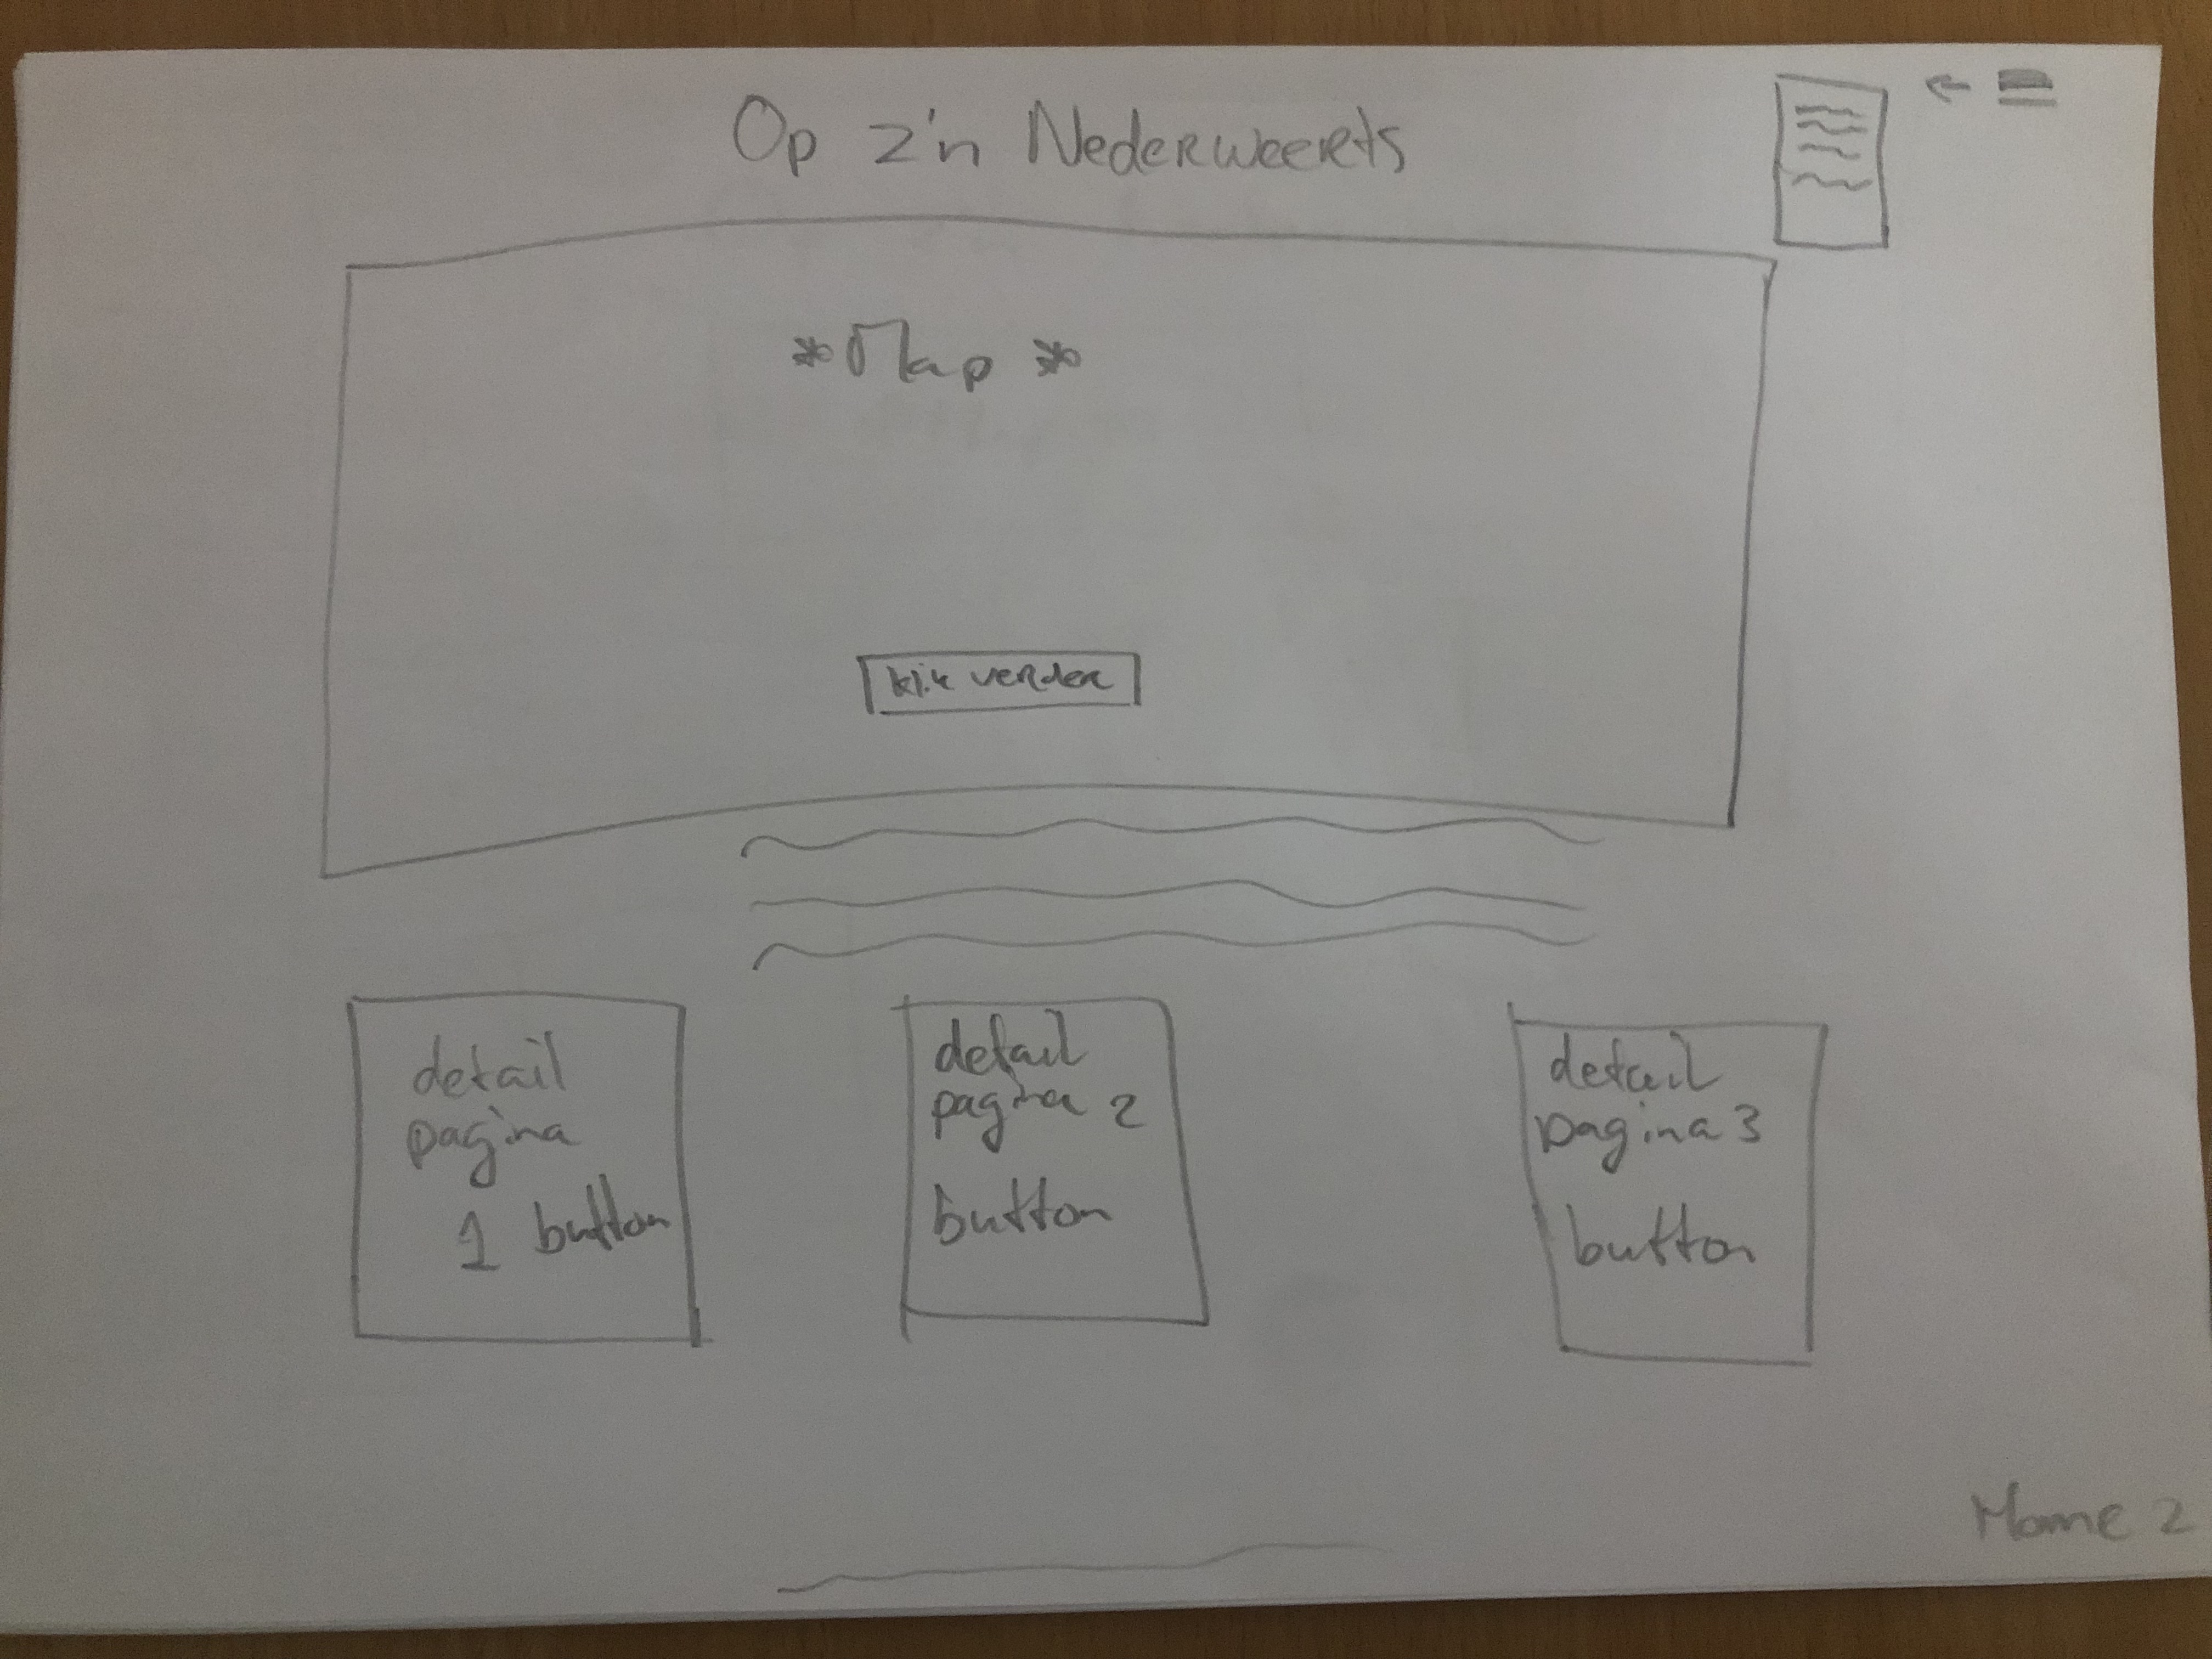 Op z'n Nederweerts
*Map*
klik verder
detail
pagina
1 button
detail
pagina 2
button
detail
pagina 3
button
Home 2